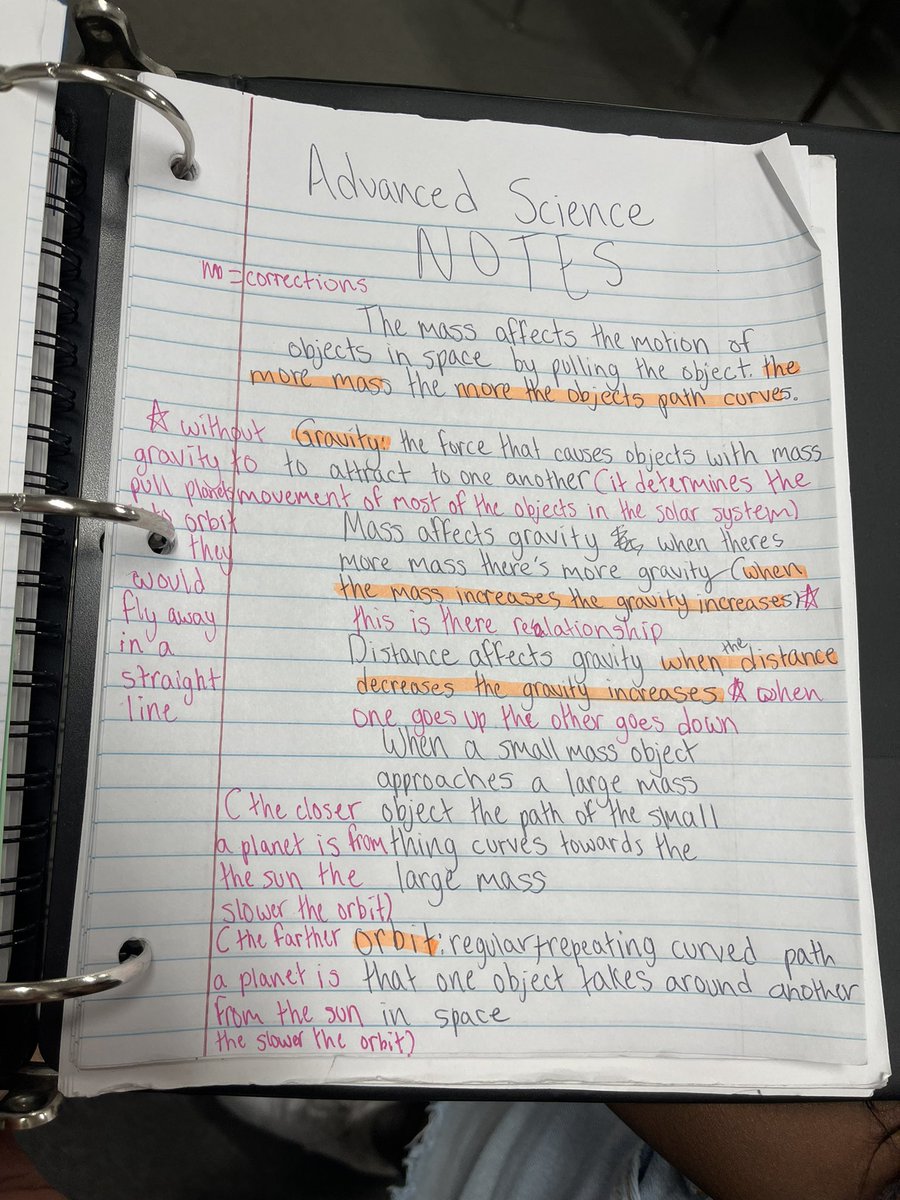 Advanced Science
NOTES
= corrections
The mass affects the motion of
objects in space by pulling the object. the
more mass the more the objects path curves.
☆ without
gravity to
pull planets
to orbit
they
would
fly away
in a
straight
line
Gravity: the force that causes objects with mass
to to attract to one another (it determines the
movement of most of the objects in the solar system)
Mass affects gravity when theres
more mass there's more gravity (when
the mass increases the gravity increases) ☆
this is there realationship
Distance affects gravity when the distance
decreases the gravity increases ☆ when
one goes up the other goes down
When a small mass object
approaches a large mass
object the path of the small
thing curves towards the
large mass
(the closer
a planet is from
the sun the
slower the orbit)
(the farther
a planet is
from the sun
the slower the orbit)
orbit: regular + repeating curved path
that one object takes around another
in space